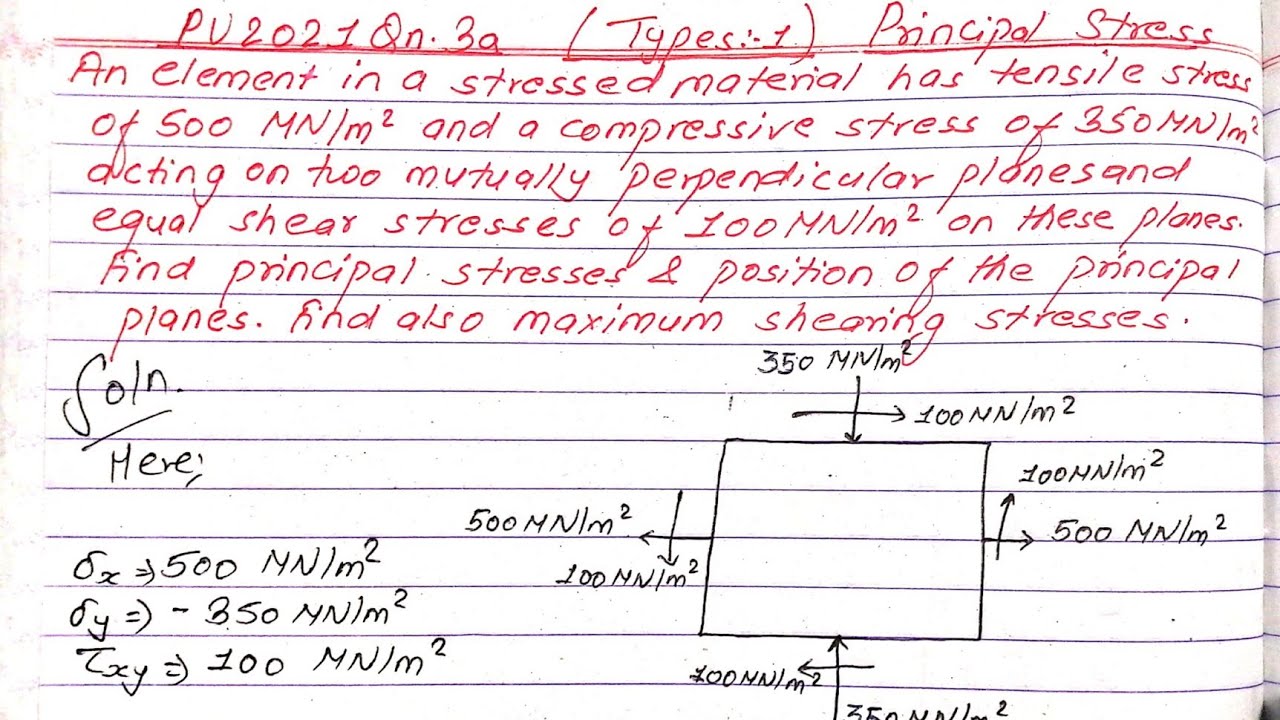 PU2021Qn.3a (Types:-1) Principal Stress
An element in a stressed material has tensile stress
of 500 MN/m² and a compressive stress of 350MN/m²
acting on two mutually perpendicular planes and
equal shear stresses of 100MN/m² on these planes.
Find principal stresses & position of the principal
planes. find also maximum shearing stresses.
Soln.
Here;
350 MN/m²
100MN/m²
100MN/m²
500MN/m²
500 MN/m²
100MN/m²
σx ⇒ 500 MN/m²
σy ⇒ - 350 MN/m²
τxy ⇒ 100 MN/m²
100MN/m²
350 MN/m²